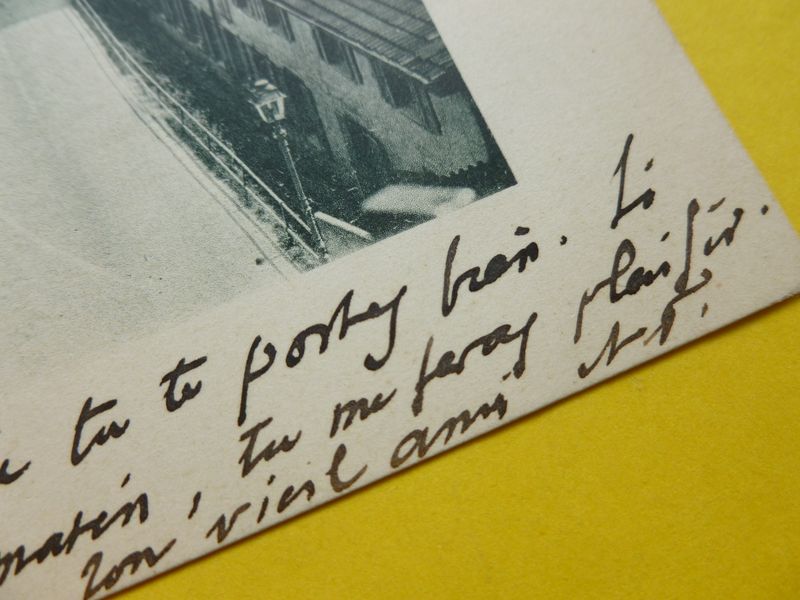 tu te portes bien. Si
matin, tu me feras plaisir.
ton vieil ami